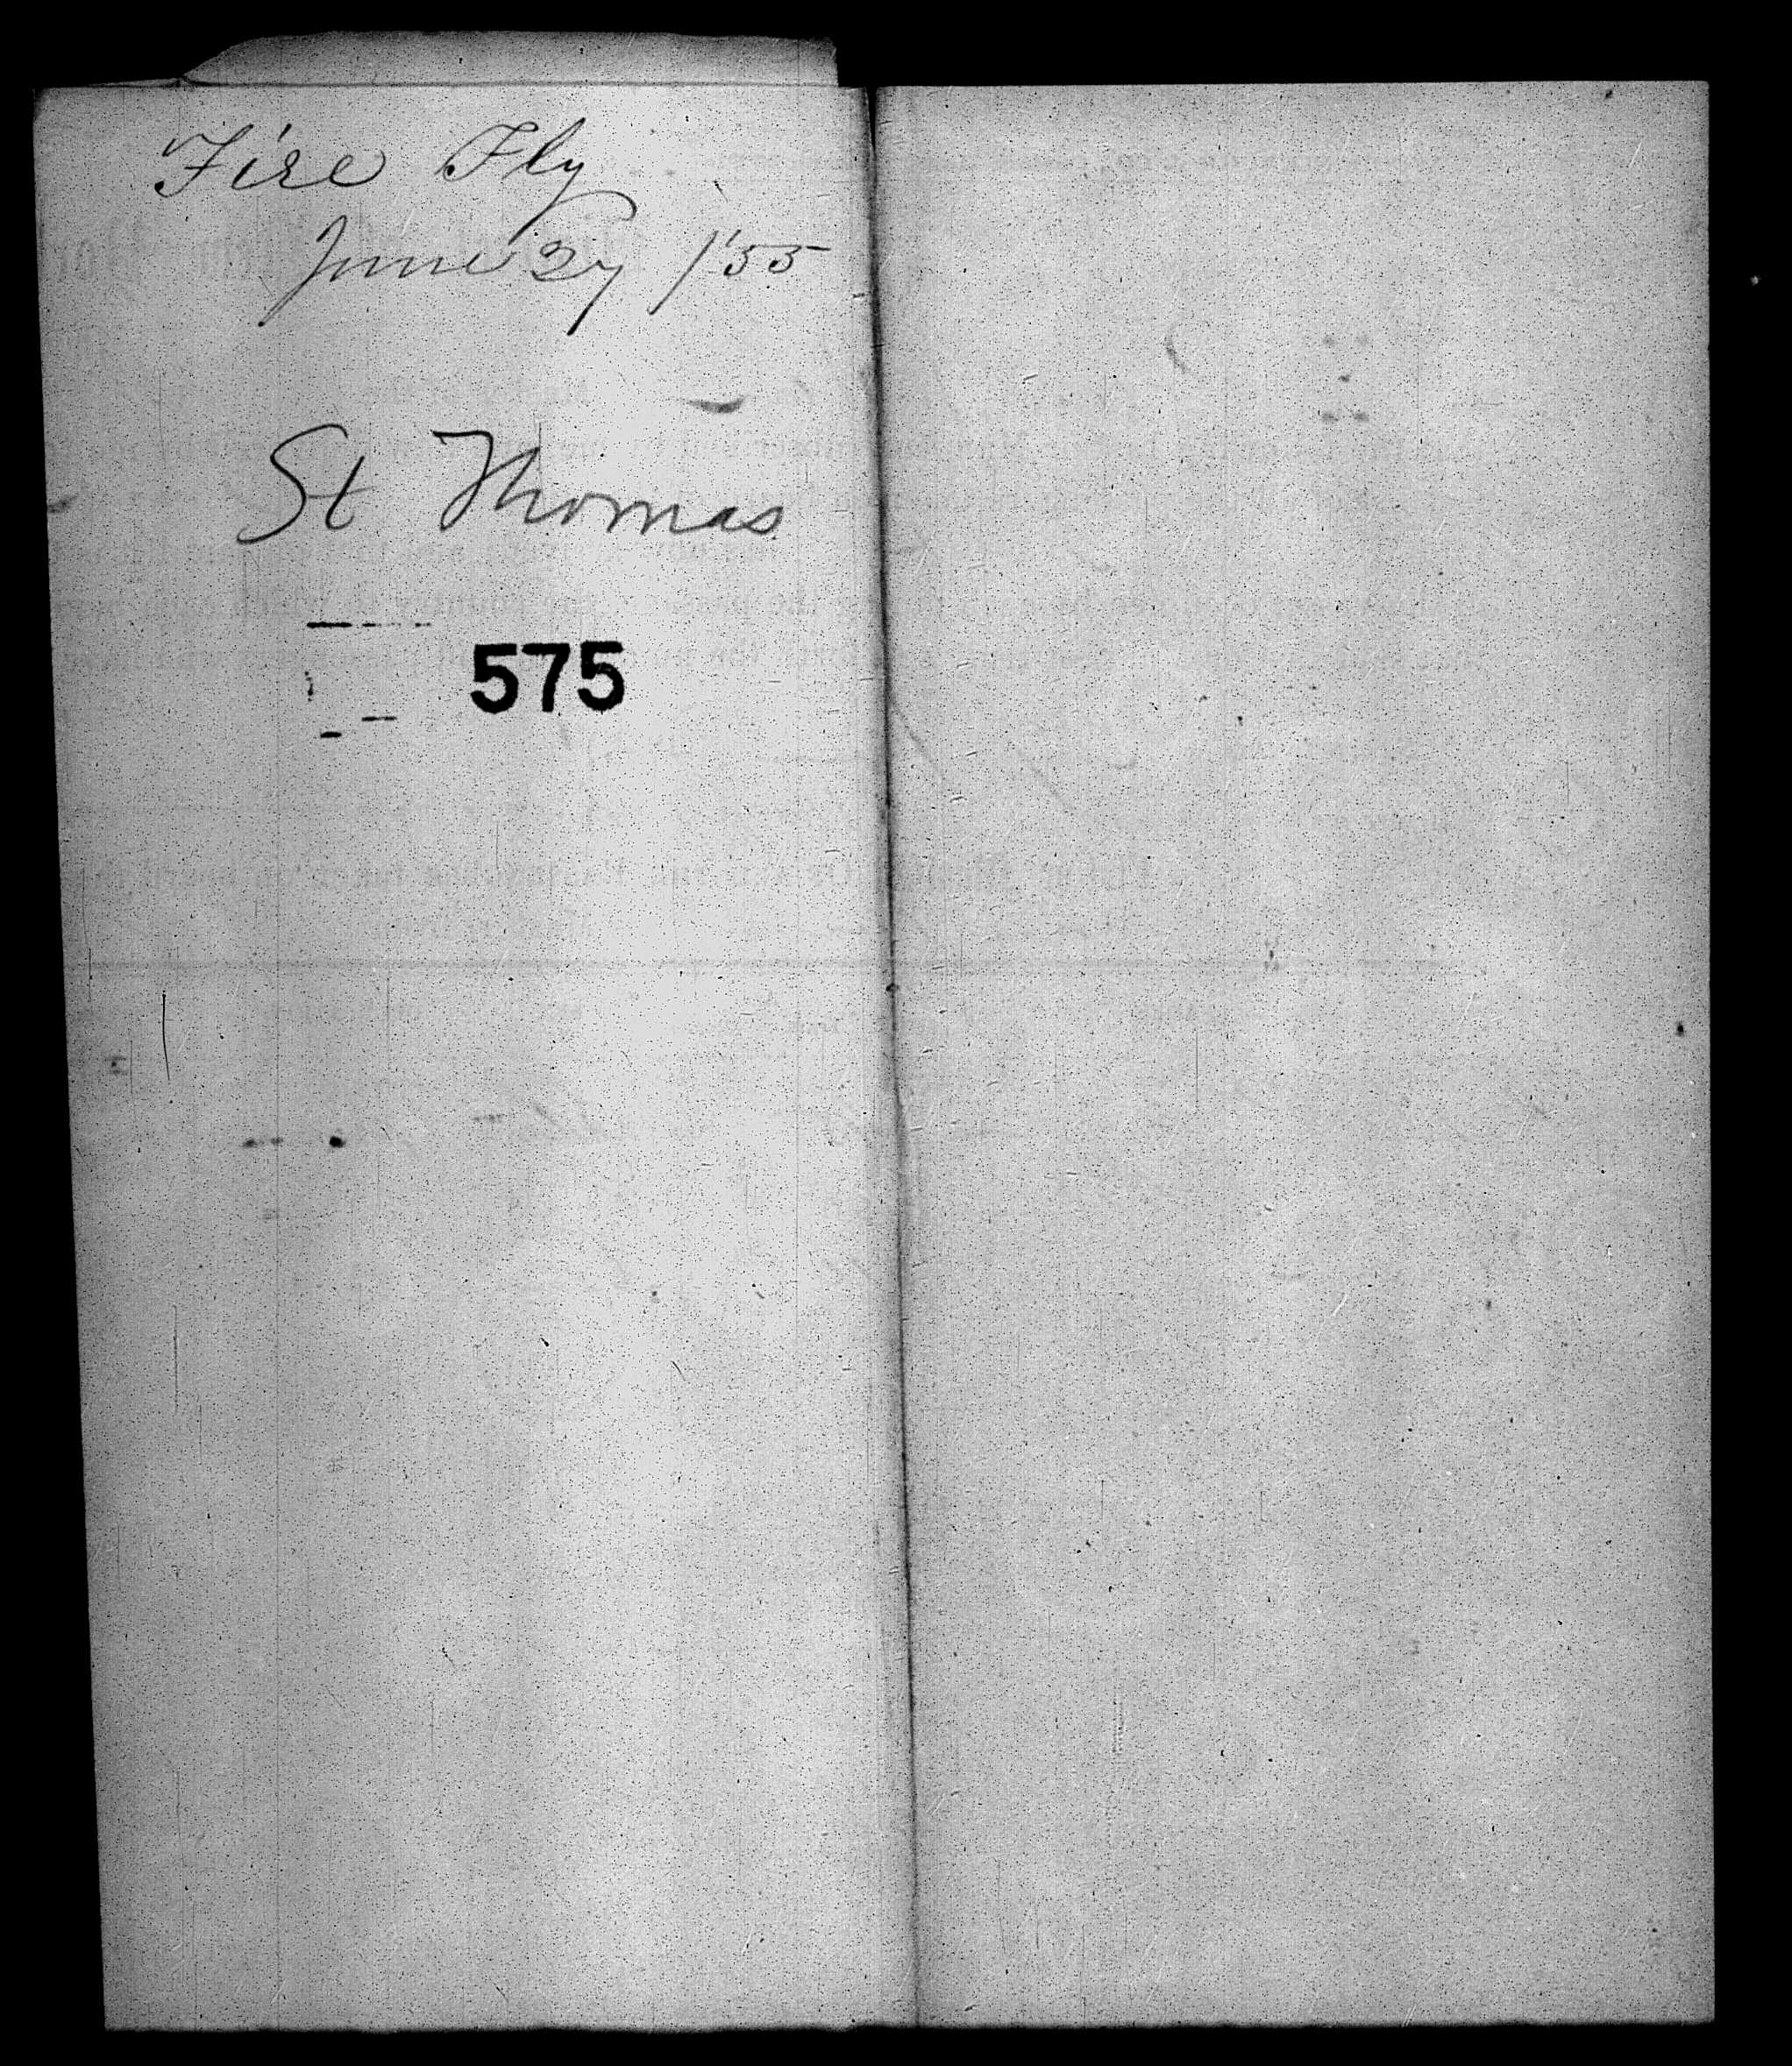 Fire Fly
June 27 /55
St Thomas
575